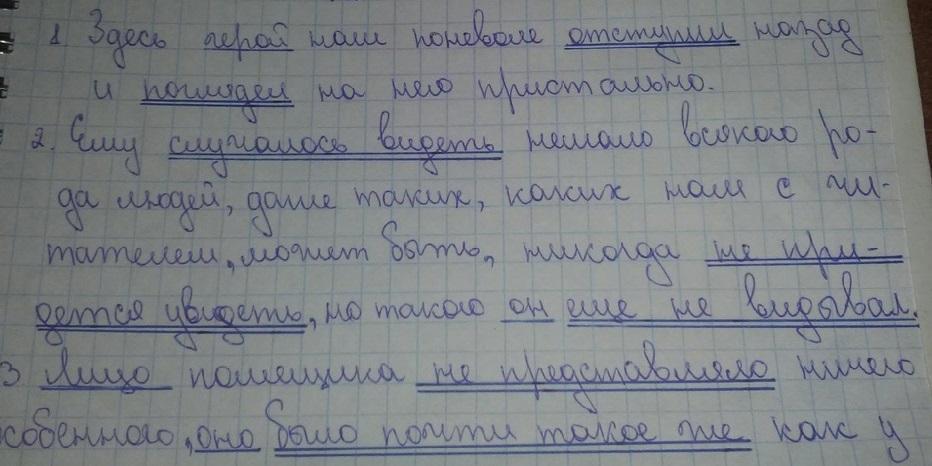 1 Здесь герой наш поневоле отступил назад
и поглядел на него пристально.
2. Ему случалось видеть немало всякого ро-
да людей, даже таких, каких нам с чи-
тателем, может быть, никогда не при-
дется увидеть, но такого он еще не видывал.
3 Лицо помещика не представляло ничего
собенного, оно было почти такое же как у